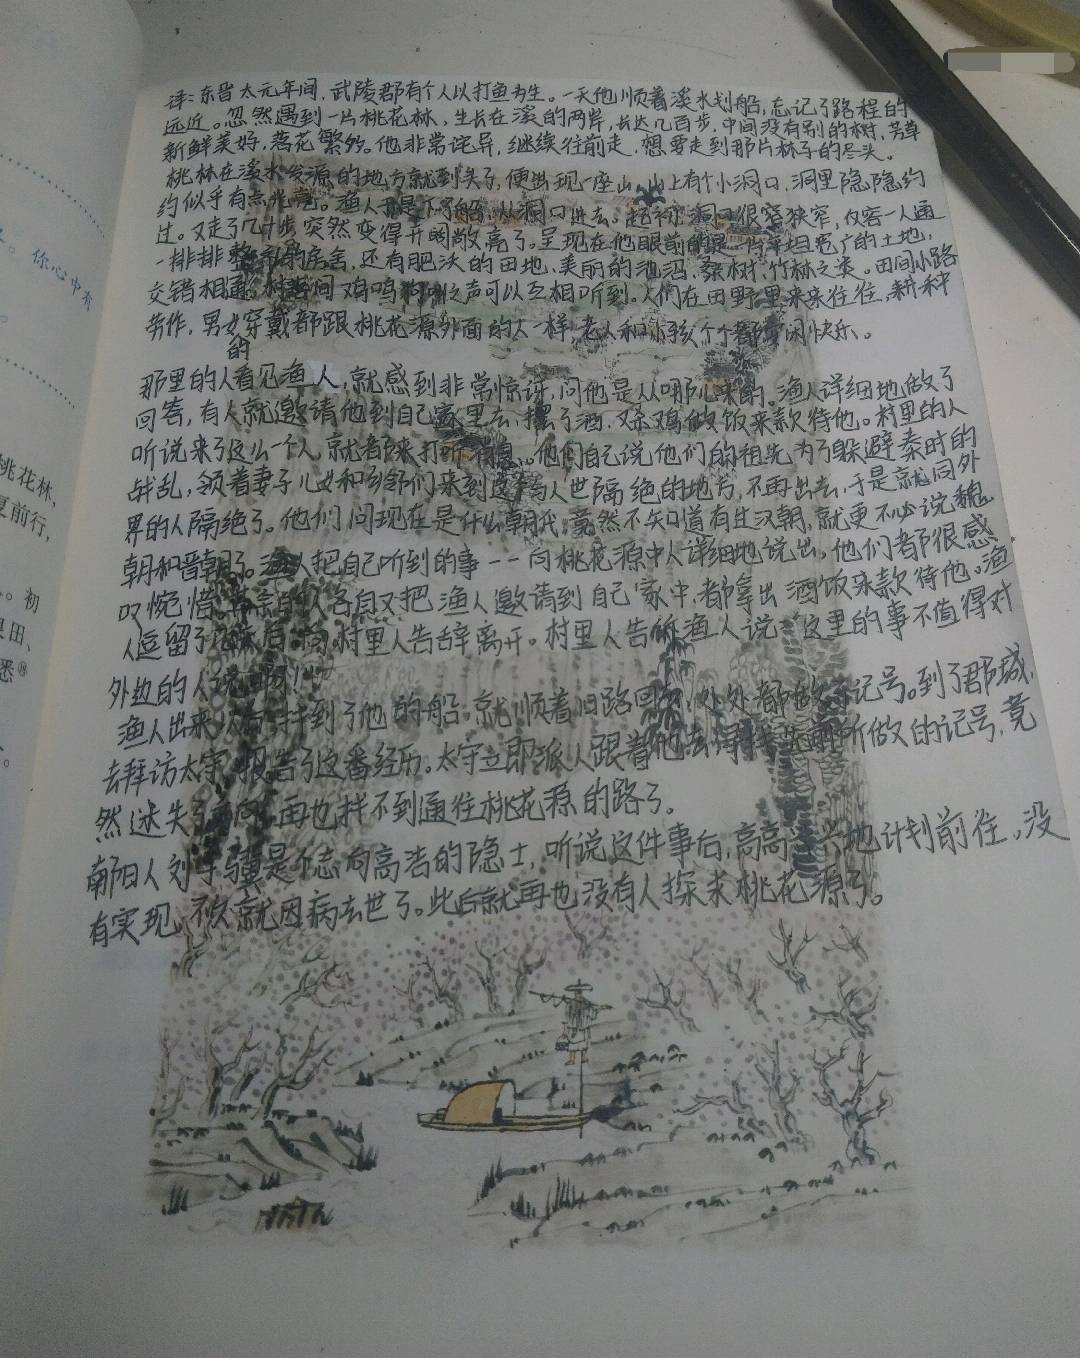 你心中有
桃花林,
复前行,
初
良田、
悉⑱
译:东晋太元年间,武陵郡有个人以打鱼为生。一天他顺着溪水划船,忘记了路程的
远近。忽然遇到一片桃花林,生长在溪的两岸,长达几百步,中间没有别的树,芳草
新鲜美好,落花繁多。他非常诧异,继续往前走,想要走到那片林子的尽头。
桃林在溪水发源的地方就到头了,便出现一座山,山上有个小洞口,洞里隐隐约
约似乎有点光亮。渔人于是下了船,从洞口进去。起初洞口很窄狭窄,仅容一人通
过。又走了几十步,突然变得开阔敞亮了。呈现在他眼前的是一片平坦宽广的土地,
一排排整齐的房舍,还有肥沃的田地、美丽的池沼,桑树、竹林之类。田间小路
交错相通,村落间鸡鸣狗吠之声可以互相听到。人们在田野里来来往往,耕种
劳作,男女穿戴都跟桃花源外面的人一样,老人和小孩个个都安闲快乐。
的
那里的人看见渔人,就感到非常惊讶,问他是从哪儿来的。渔人详细地做了
回答,有人就邀请他到自己家里去,摆了酒,又杀鸡做饭来款待他。村里的人
听说来了这么一个人,就都来打听消息。他们自己说他们的祖先为了躲避秦时的
战乱,领着妻子儿女和乡邻们来到这与人世隔绝的地方,不再出去,于是就同外
界的人隔绝了。他们问现在是什么朝代,竟然不知道有过汉朝,就更不必说魏
朝和晋朝了。渔人把自己听到的事一一向桃花源中人详细地说出。他们都很感
叹惋惜。其余的人各自又把渔人邀请到自己家中,都拿出酒饭来款待他。渔
人逗留了几天后,向村里人告辞离开。村里人告诉渔人说:“这里的事不值得对
外边的人说啊!”
渔人出来以后,找到了他的船,就顺着旧路回去,处处都做了记号。到了郡城,
去拜访太守,报告了这番经历。太守立即派人跟着他去寻找先前所做的记号,竟
然迷失了方向,再也找不到通往桃花源的路了。
南阳人刘子骥是个志向高洁的隐士,听说这件事后,高高兴兴地计划前往。没
有实现,不久就因病去世了。此后就再也没有人探求桃花源了。